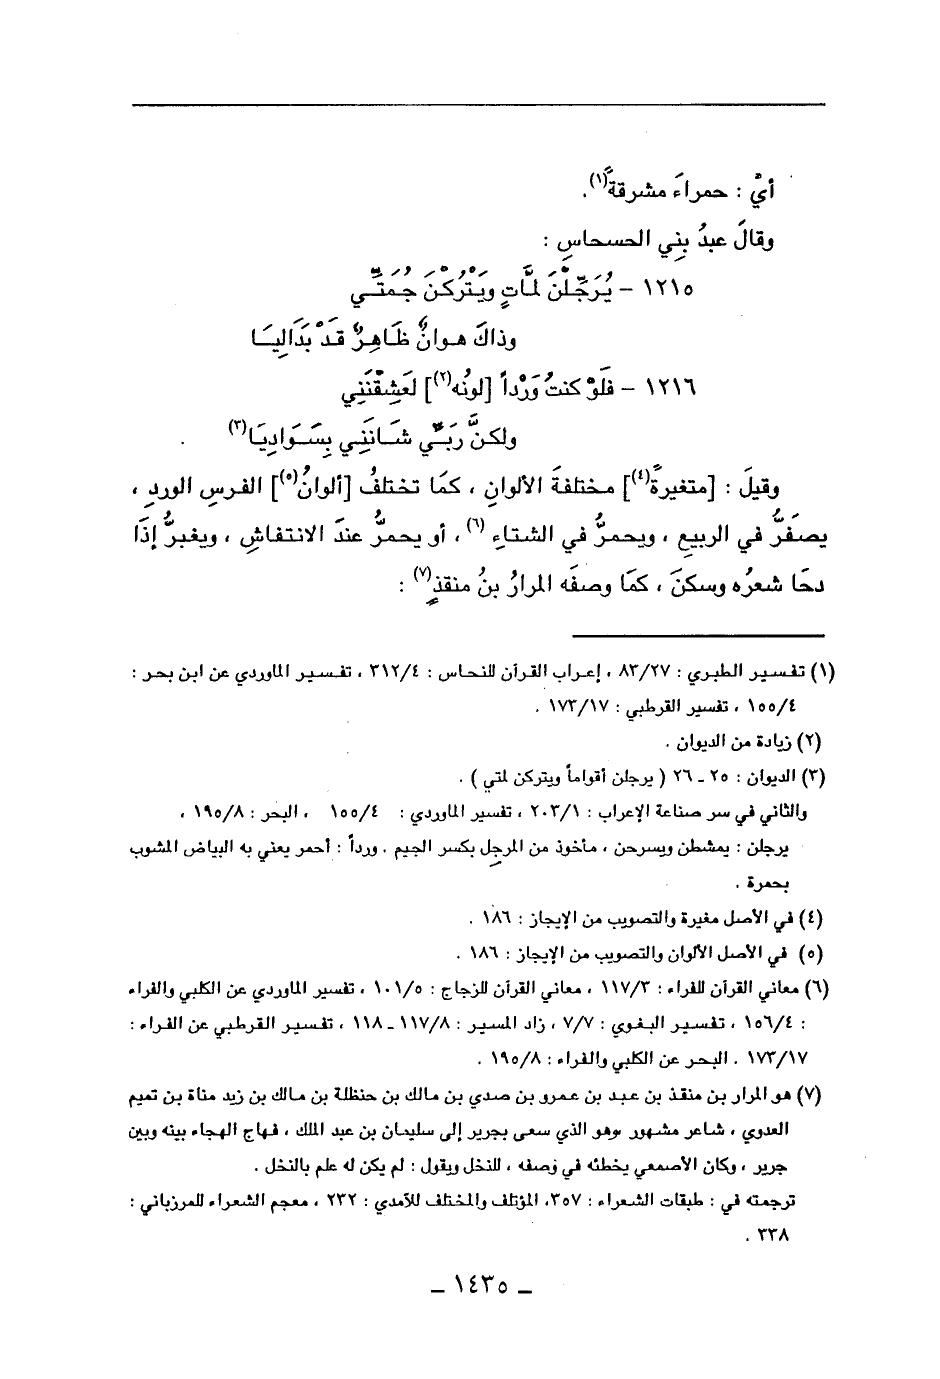 أيْ : حمراءَ مشرقةً(١).
وقالَ عبدُ بنِي الحسحاسِ :
١٢١٥ – يُرَجِّلْنَ لمَّاتٍ ويَتْرُكْنَ جُمَّتِي
وذاكَ هوانٌ ظَاهِرٌ قَدْ بَدَالِيَا
١٢١٦ – فلَوْ كنتُ وَرْداً [لونُه(٢)] لعَشِقْنَنِي
ولكنَّ رَبِّي شَانَنِي بِسَوَادِيَا(٣)
وقيلَ : [متغيرةً(٤)] مختلفةَ الألوانِ ، كمَا تختلفُ [ألوانُ(٥)] الفرسِ الوردِ ،
يصفَرُّ في الربيعِ ، ويحمرُّ في الشتاءِ (٦) ، أو يحمرُّ عندَ الانتفاشِ ، ويغبرُّ إذَا
دحَا شعرُه وسكنَ ، كمَا وصفَه المرارُ بنُ منقذٍ(٧) :
(١) تفسير الطبري : ٨٣/٢٧ ، إعراب القرآن للنحاس : ٣١٢/٤ ، تفسير الماوردي عن ابن بحر :
١٥٥/٤ ، تفسير القرطبي : ١٧٣/١٧ .
(٢) زيادة من الديوان .
(٣) الديوان : ٢٥ ـ ٢٦ ( يرجلن أقواماً ويتركن لمتي ) .
والثاني في سر صناعة الإعراب : ٢٠٣/١ ، تفسير الماوردي : ١٥٥/٤ ، البحر : ١٩٥/٨ ،
يرجلن : يمشطن ويسرحن ، مأخوذ من المرجِل بكسر الجيم . ورداً : أحمر يعني به البياض المشوب
بحمرة .
(٤) في الأصل مغيرة والتصويب من الإيجاز : ١٨٦ .
(٥) في الأصل الألوان والتصويب من الإيجاز : ١٨٦ .
(٦) معاني القرآن للفراء : ١١٧/٣ ، معاني القرآن للزجاج : ١٠١/٥ ، تفسير الماوردي عن الكلبي والفراء
: ١٥٦/٤ ، تفسير البغوي : ٧/٧ ، زاد المسير : ١١٧/٨ ـ ١١٨ ، تفسير القرطبي عن الفراء :
١٧٣/١٧ . البحر عن الكلبي والفراء : ١٩٥/٨ .
(٧) هو المرار بن منقذ بن عبد بن عمرو بن صدي بن مالك بن حنظلة بن مالك بن زيد مناة بن تميم
العدوي ، شاعر مشهور ،وهو الذي سعى بجرير إلى سليمان بن عبد الملك ، فهاج الهجاء بينه وبين
جرير ، وكان الأصمعي يخطئه في وصفه ، للنخل ويقول : لم يكن له علم بالنخل .
ترجمته في : طبقات الشعراء : ٣٥٧، المؤتلف والمختلف للآمدي : ٢٣٢ ، معجم الشعراء للمرزباني :
٣٣٨ .
ـ ١٤٣٥ ـ